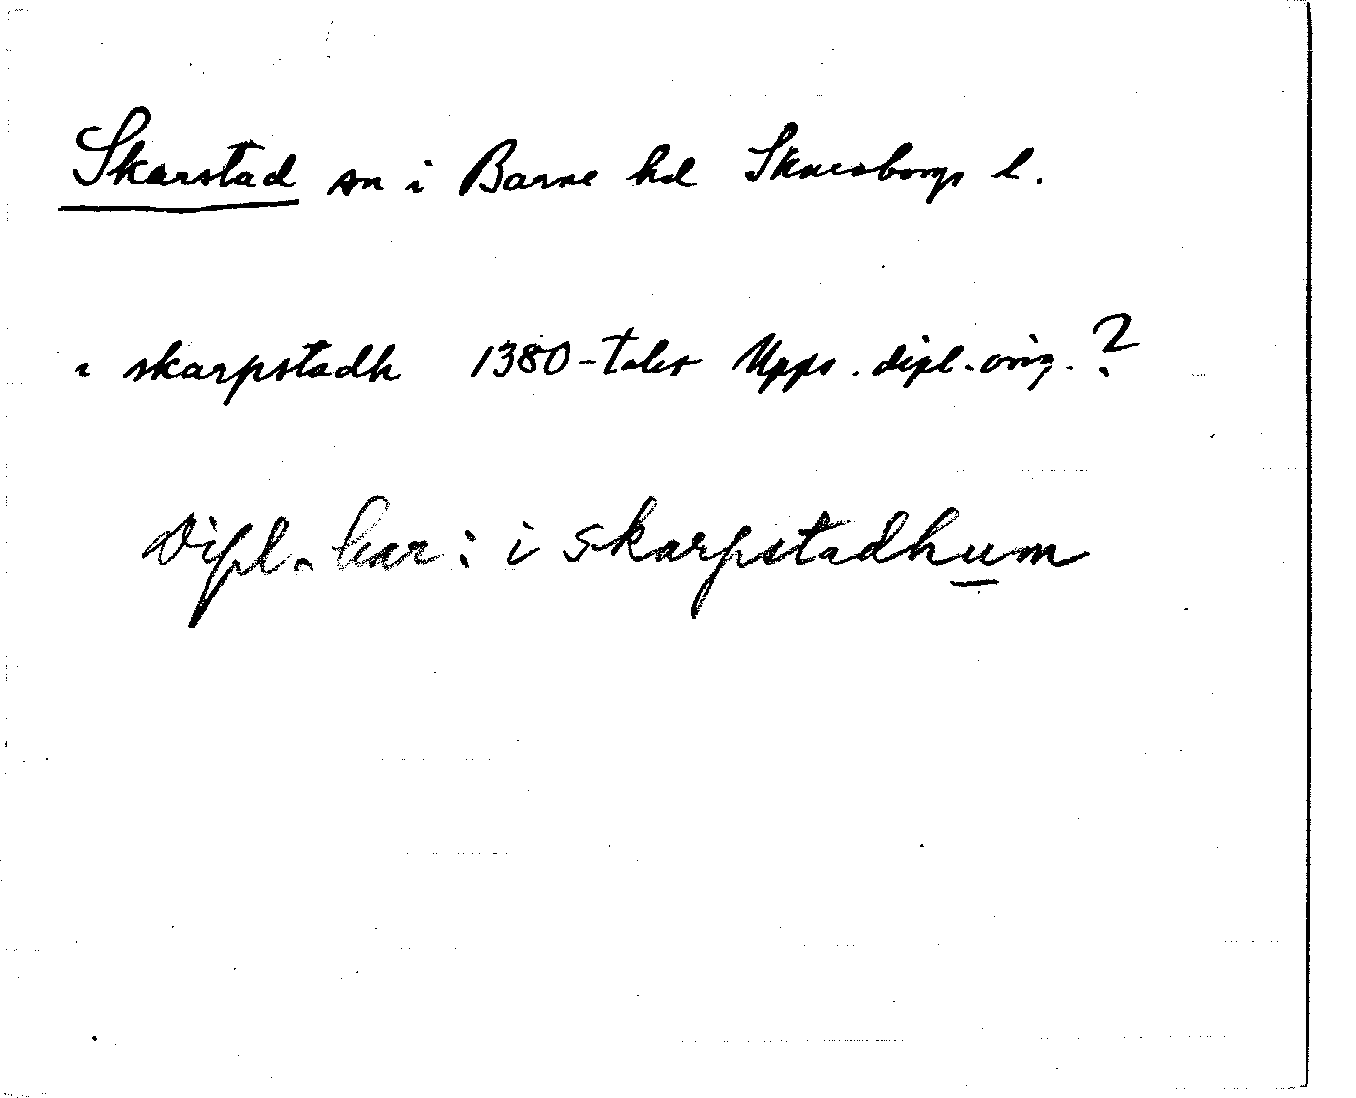 Skarstad sn i Barne hd Skaraborgs l.
i skarpstadh 1380-talet Upps. dipl. orig. ?
Dipl. har: i skarpstadhum